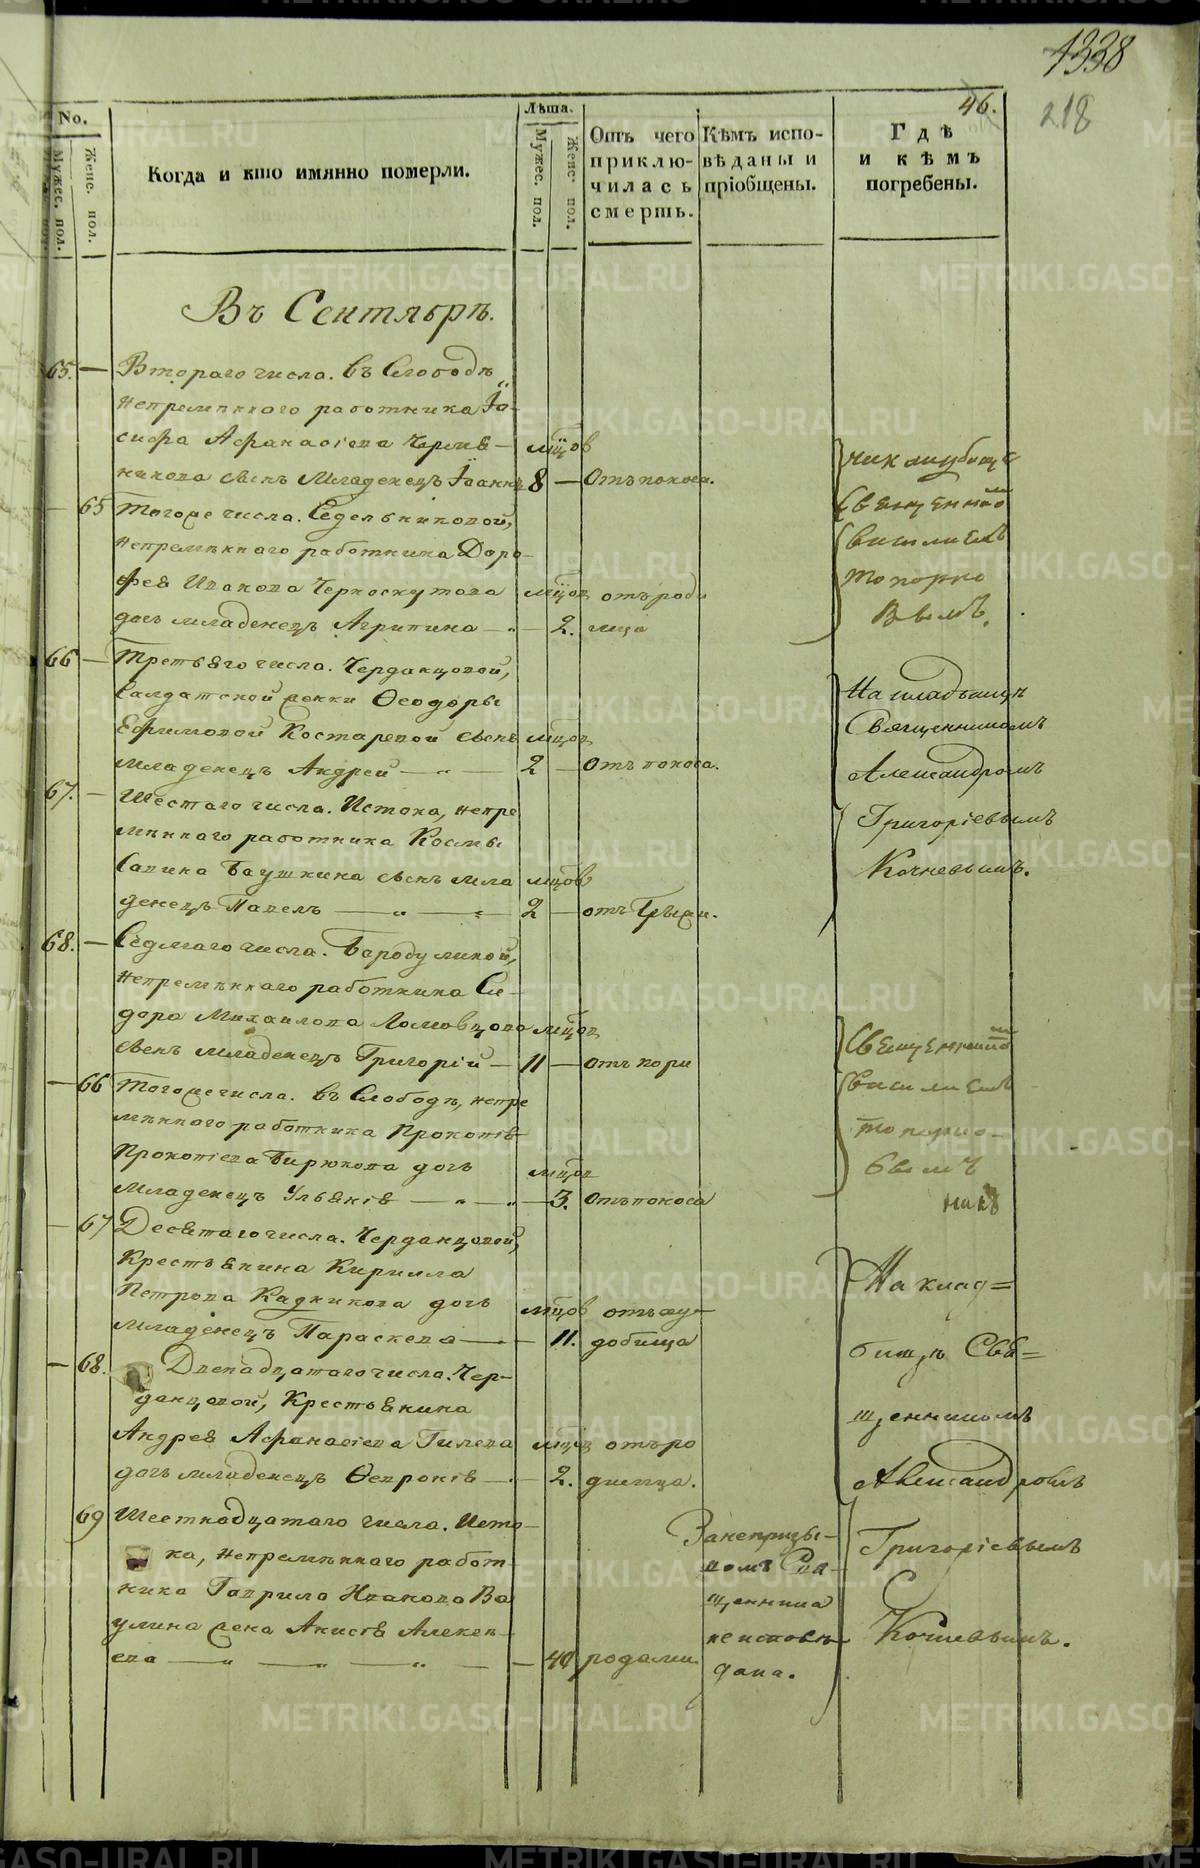 1338
218
46.
No.
Мужес. пол.
Женс. пол.
Когда и кто имянно померли.
Лѣта.
Мужес. пол.
Женс. пол.
Отъ чего
приклю-
чилась
смерть.
Кѣмъ испо-
вѣданы и
пріобщены.
Гдѣ
и кѣмъ
погребены.
Въ Сентябрѣ.
65. — Втораго числа. въ Слободѣ
непремѣннаго работника Іо-
сифа Афанасіева
сынъ Младенецъ Іоаннъ 8 — отъ поноса.
мцов
Священно
Василиемъ
Топорко
вымъ.
65 Тогоже числа. Седельниковой,
непремѣннаго работника Доро-
фея Ивакова Черноскутова мцов отъ роди
дочь младенецъ Агрипина — 2. мца
66 — Третьяго числа. Черданцовой,
Салдатской женки Ѳеодоры
Ефимовой Костаревой сынъ мцов
младенецъ Андрей — 2 — отъ поноса.
На кладбищѣ
Священникомъ
Александромъ
Григоріевымъ
Кочневымъ.
67. — Шестаго числа. Истока, непре
мѣннаго работника Космы
Савина Баушкина сынъ мла мцов
денецъ Павелъ — 2 — отъ Грыжи.
68. — Седмаго числа. Бородулиной,
непремѣннаго работника Си-
дора Михаилова Ломовцова мцов
сынъ младенецъ Григорій — 11 — отъ кори
Священно
Василиемъ
Топорко-
вымъ
— 66 Тогоже числа. въ Слободѣ, непре
мѣннаго работника Прокопія
Прокопіева Бирюкова дочь мцов
младенецъ Ульянія — 3. отъ поноса
— 67 Десятаго числа. Черданцовой,
Крестьянина Кирилла
Петрова Кадникова дочь мцов отъ ху-
младенецъ Параскева — 11. добища
На клад=
бищѣ Свя=
щенникомъ
Александромъ
Григоріевымъ
Кочневымъ.
— 68. Двенадцатаго числа. Чер-
данцовой, Крестьянина
Андрея Афанасіева Гилева мцов отъ ро
дочь младенецъ Ѳевронія — 2. димца.
69 Шестнадцатаго числа. Исто-
ка, непремѣннаго работ-
ника Гаврила Ивакова Ва
улина жена Анисія Алексе-
ева — 40 родами
Занепризы-
вомъ Свя-
щенника
неисповѣ-
дана.
METRIKI.GASO-URAL.RU